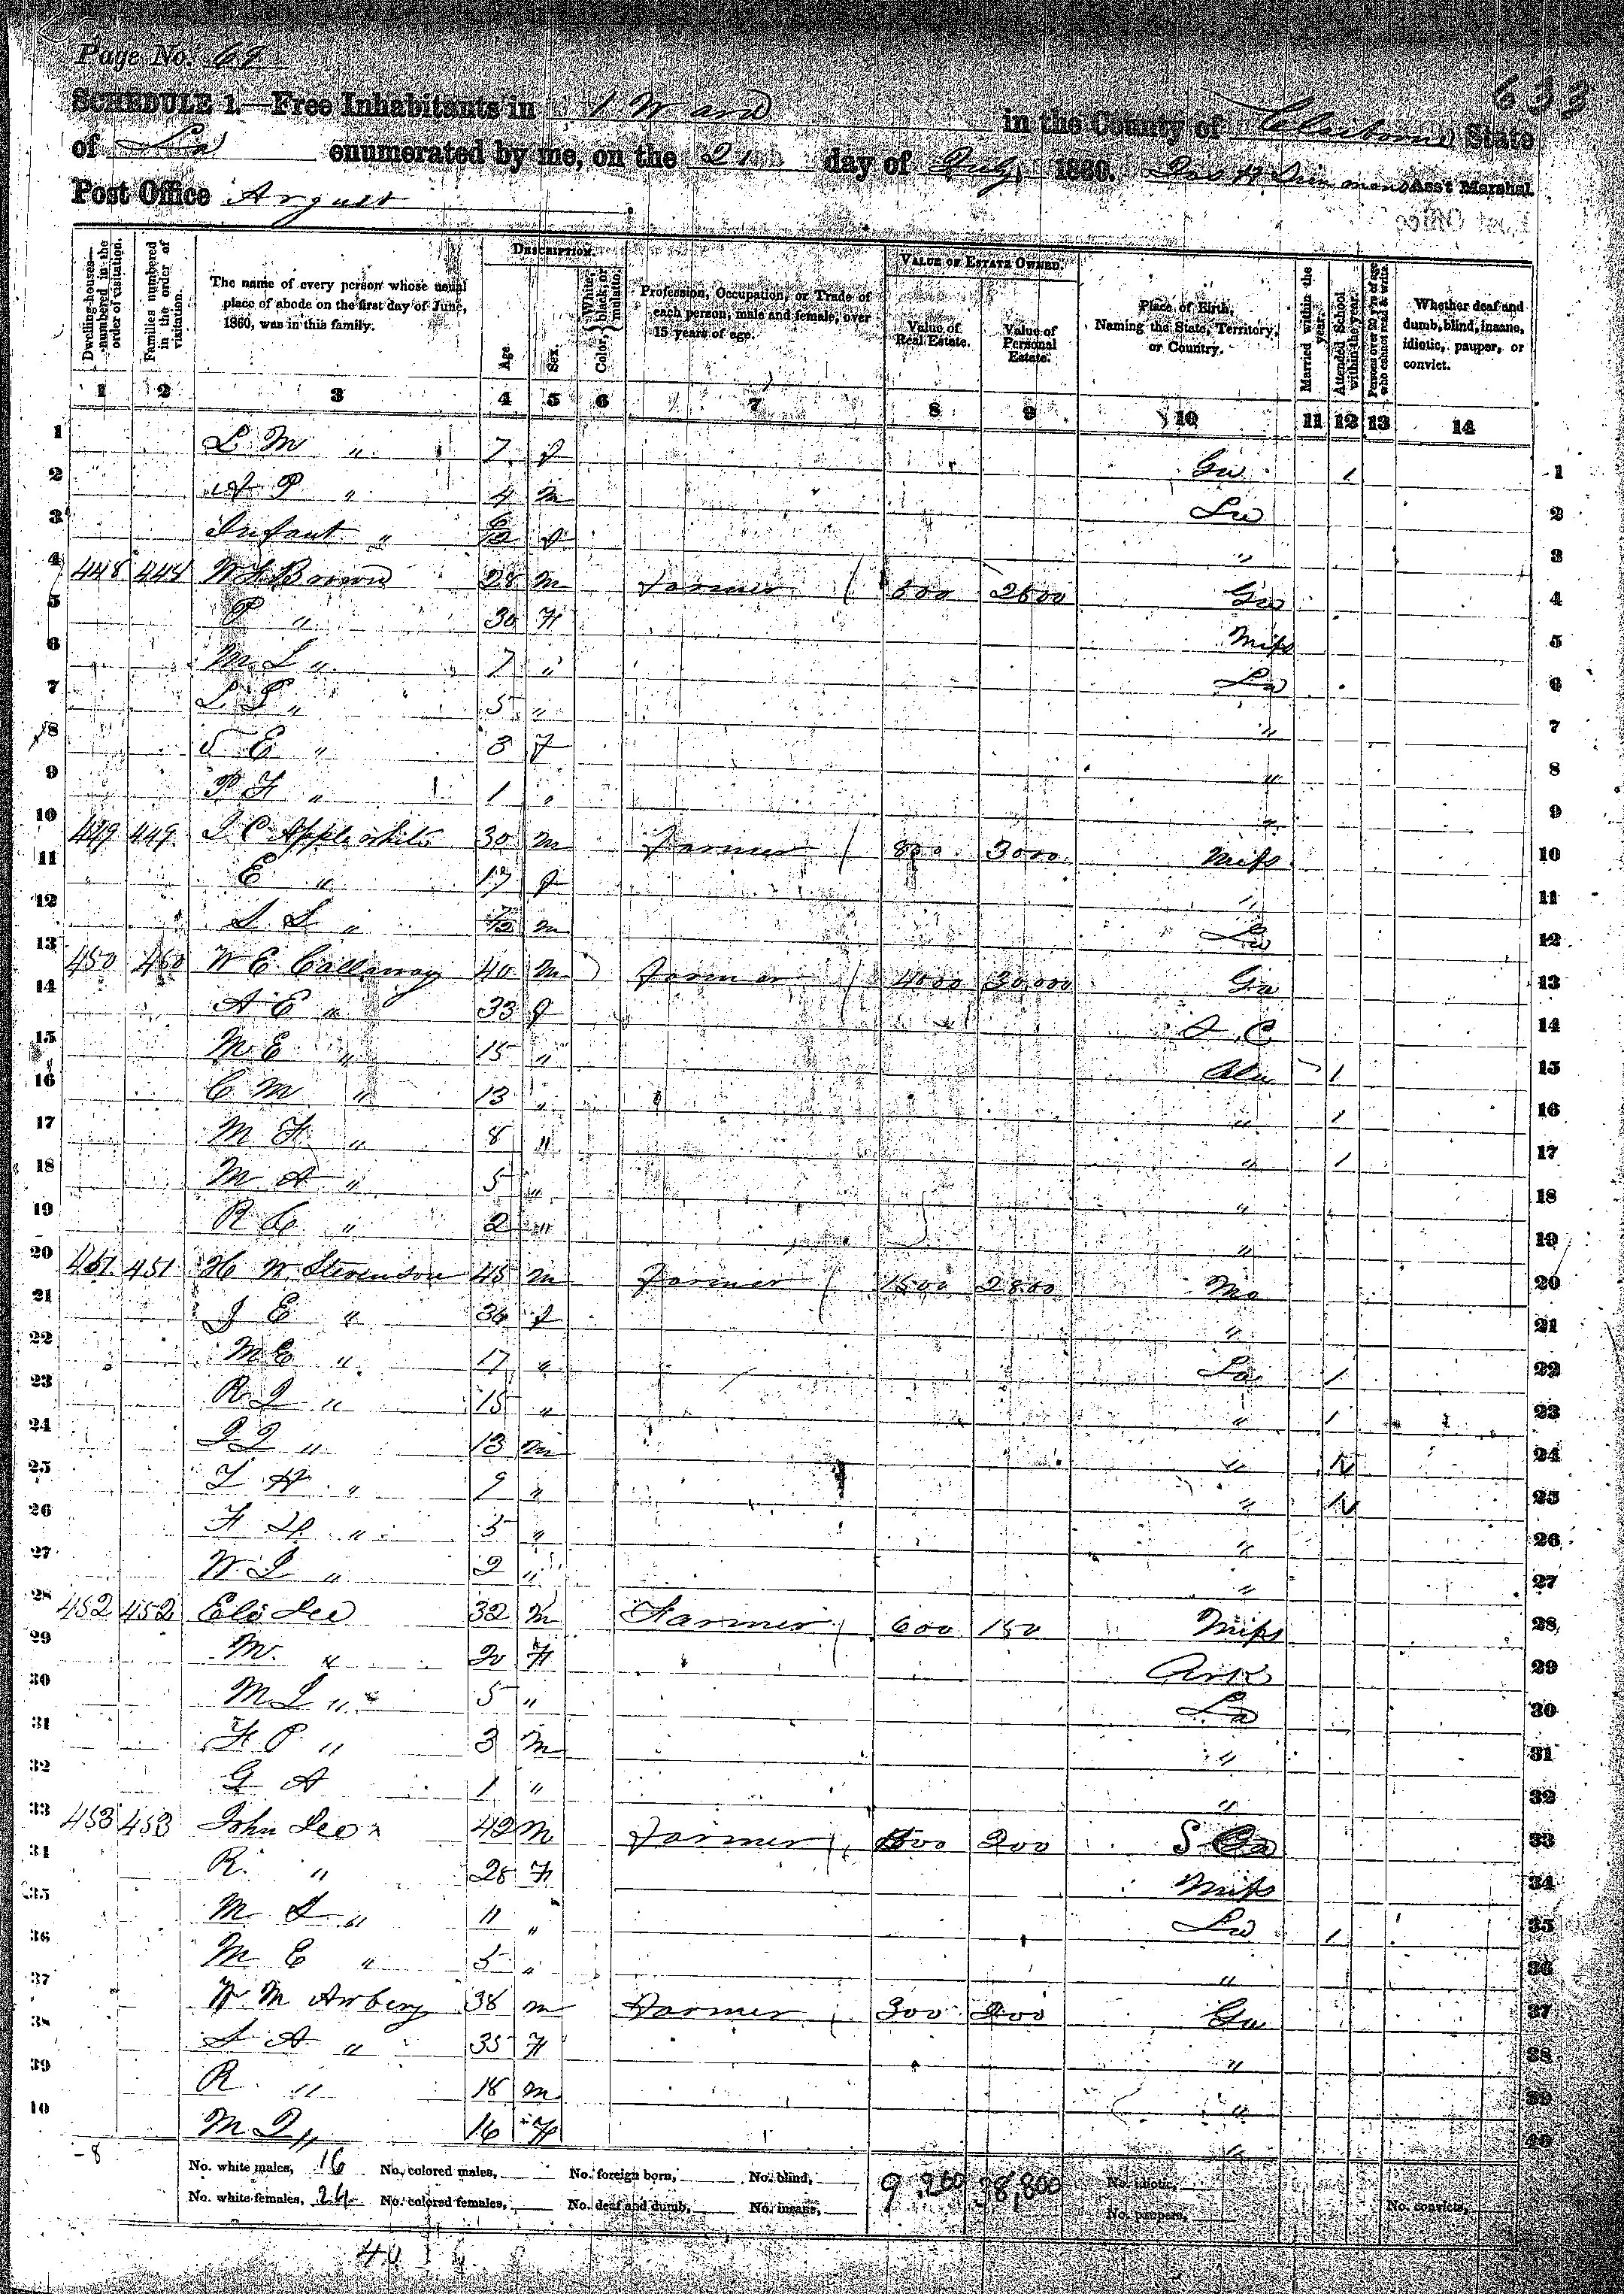 Page No. 69
633
SCHEDULE 1.—Free Inhabitants in 1 Ward in the County of Claiborne State
of La enumerated by me, on the 21 day of July, 1860. Ass't Marshal.
Post Office Argust
Dwelling-houses—numbered in the order of visitation.
Families numbered in the order of visitation.
The name of every person whose usual place of abode on the first day of June, 1860, was in this family.
DESCRIPTION.
Age.
Sex.
Color, { White, black, or mulatto.
Profession, Occupation, or Trade of each person, male and female, over 15 years of age.
VALUE OF ESTATE OWNED.
Value of Real Estate.
Value of Personal Estate.
Place of Birth, Naming the State, Territory, or Country.
Married within the year.
Attended School within the year.
Persons over 20 y'rs of age who cannot read & write.
Whether deaf and dumb, blind, insane, idiotic, pauper, or convict.
1 2 3 4 5 6 7 8 9 10 11 12 13 14
1 L M " 7 f Ga / 1
2 P " 4 m La 2
3 Infant " f " 3
4 448 448 Brown 28 m Farmer 2600 Ga 4
5 P " 30 F Miss 5
6 M L " 7 " La 6
7 L " 5 " " 7
8 E " 3 f " 8
9 F " 1 " " 9
10 449 449 J C Applewhite 30 m Farmer 800 3000 Miss 10
11 E " 17 f " 11
12 S S " m La 12
13 450 450 W E Callaway 40 m Farmer 4000 30,000 Ga 13
14 A E " 33 f C 14
15 M E " 15 " Ala / 15
16 C M " 13 " " / 16
17 M F " 8 " " / 17
18 M A " 5 " " 18
19 R C " 2 " " 19
20 451 451 H W Stevenson 45 m Farmer 1500 2800 Mo 20
21 J E " 36 f " 21
22 M E " 17 " La / 22
23 R J " 15 " " / 23
24 J J " 13 m " / 24
25 H " 9 " " / 25
26 F " 5 " " 26
27 W J " 2 " " 27
28 452 452 Eli Lee 32 m Farmer 600 150 Miss 28
29 M. " 20 F Ark 29
30 M J " 5 " La 30
31 F P " 3 m " 31
32 G A 1 " " 32
33 453 453 John Lee 42 m Farmer 200 S Ca 33
34 R. " 28 F Miss 34
35 M S " 11 " La / 35
36 M E " 5 " " 36
37 W M Arbery 38 m Farmer 300 200 Ga 37
38 S A " 35 F " 38
39 R " 18 m " 39
40 M J " 16 F " 40
-8 No. white males, 16 No. colored males, No. foreign born, No. blind, 9,200 38,800 No. idiotic,
No. white females, 24 No. colored females, No. deaf and dumb, No. insane, No. paupers, No. convicts,
40